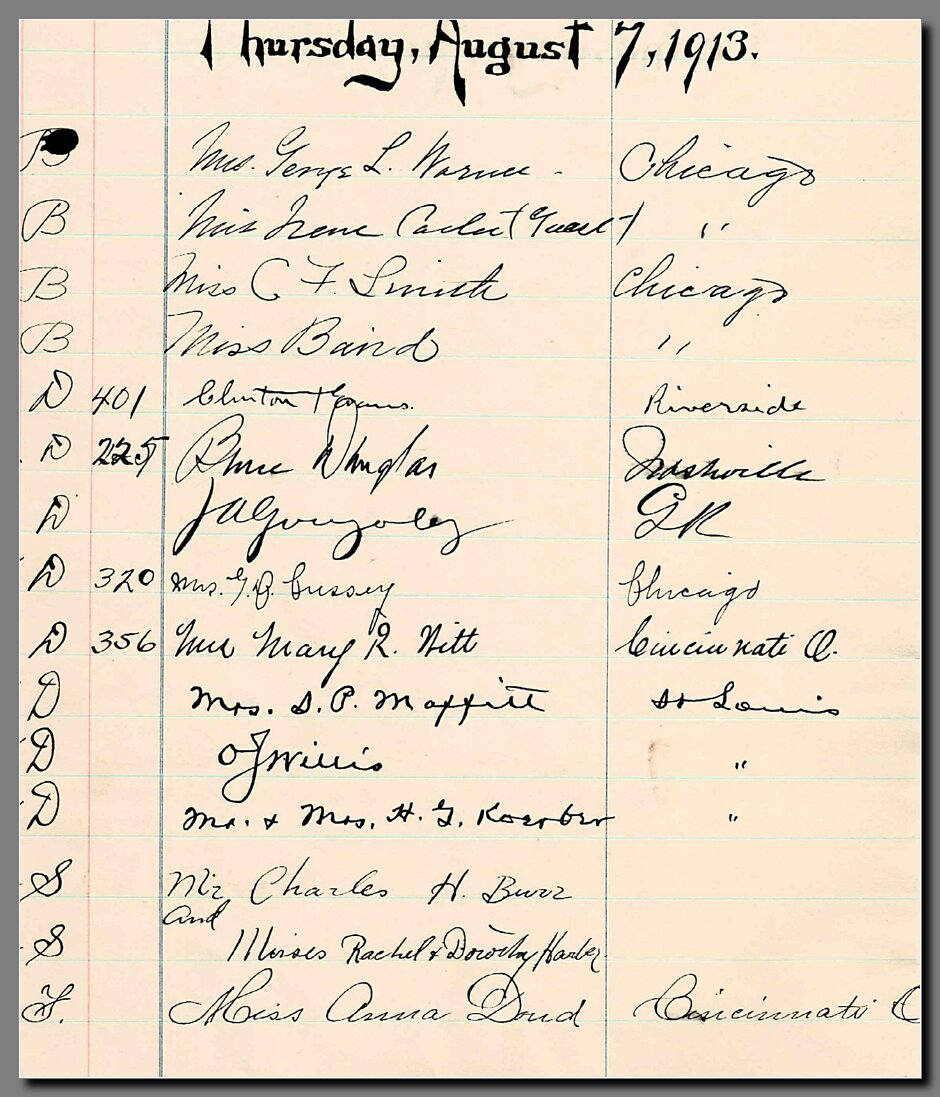 Thursday, August 7, 1913.
B Mrs. George L. Warner - Chicago
B Miss Irene (Guest) "
B Miss C F Smith Chicago
B Miss Baird "
D 401 Clinton Riverside
D 225 Bruce Douglas Nashville
D J A Gonzalez G R
D 320 Mrs. G. D. Cussey Chicago
D 356 Mrs Mary R. Hitt Cincinnati O.
D Mrs. S. P. Moffitt St Louis
D O J Willis "
D Mr. & Mrs. H. G. Koerber "
S Mr Charles H. Burr
and
S Misses Rachel & Dorothy
F. Miss Anna Doud Cincinnati O